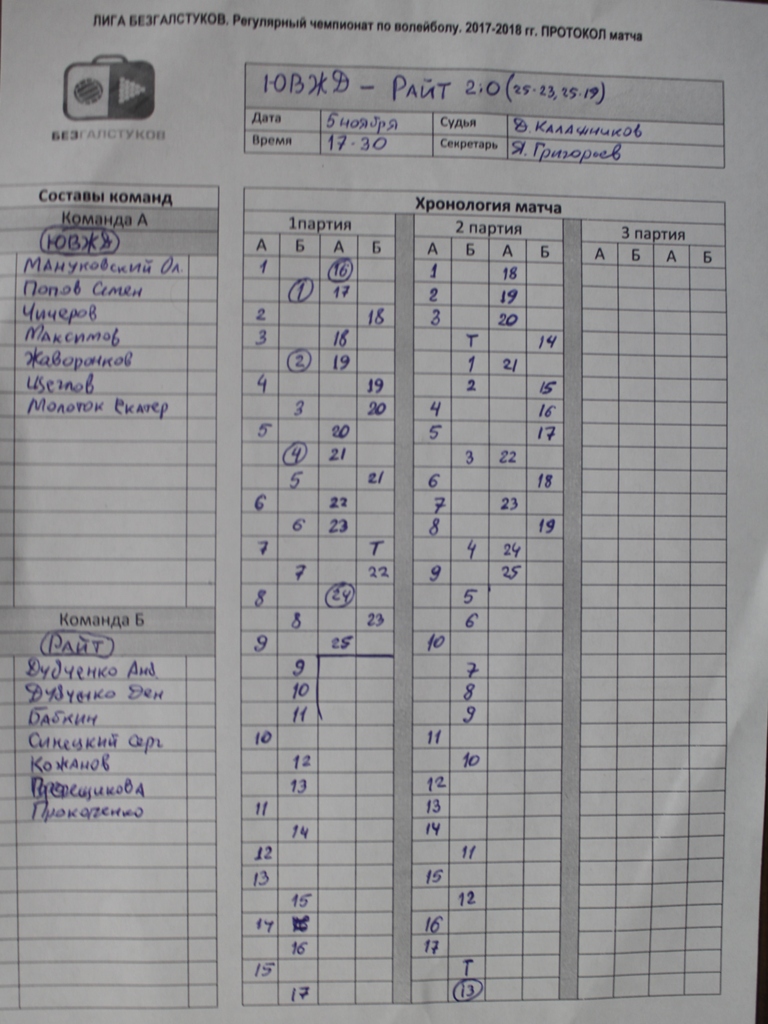 ЛИГА БЕЗГАЛСТУКОВ. Регулярный чемпионат по волейболу. 2017-2018 гг. ПРОТОКОЛ матча
БЕЗГАЛСТУКОВ
ЮВЖД – РАЙТ 2:0 (25-23, 25-19)
Дата 5 ноября Судья Д. Калашников
Время 17-30 Секретарь Я. Григорьев
Составы команд
Команда А
ЮВЖД
Мануковский Ол.
Попов Семен
Чичеров
Максимов
Жаворонков
Щеглов
Молоток Екатер
Команда Б
РАЙТ
Дудченко Анд
Дудченко Ден
Бабкин
Синецкий Серг
Кожанов
Прокопенко
Хронология матча
1партия 2 партия 3 партия
А Б А Б А Б А Б А Б А Б
1 16 1 18
1 17 2 19
2 18 3 20
3 18 Т 14
2 19 1 21
4 19 2 15
3 20 4 16
5 20 5 17
4 21 3 22
5 21 6 18
6 22 7 23
6 23 8 19
7 Т 4 24
7 22 9 25
8 24 5
8 23 6
9 25 10
9 7
10 8
11 9
10 11
12 10
13 12
11 13
14 14
12 11
13 15
15 12
14 16
16 17
15 Т
17 13